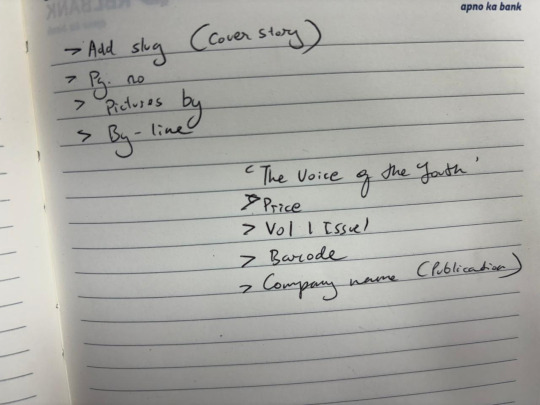 apno ka bank
RBLBANK
> Add slug (Cover story)
> Pg. no
> Pictures by
> By-line
'The Voice of the Youth'
> Price
> Vol 1 Issue 1
> Barcode
> Company name (Publication)